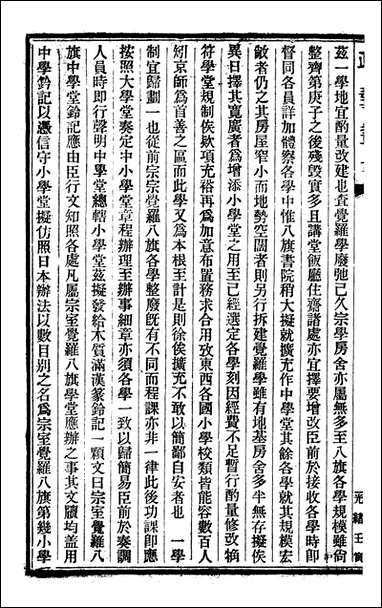 茲一學地宜酌量改建也查覺羅學廢弛已久宗學房舍亦屬無多至八旗各學規模雖尙
整齊第庚子之後殘毀實多且講堂飯廳住齋諸處亦宜擇要增改臣前於接收各學時卽
督同各員詳加體察各學中惟八旗書院稍大擬就擴充作中學堂其餘各學就其規模宏
敞者仍之其房屋窄小而地勢空闊者則另行拆建覺羅學雖有地基房舍多半無存擬俟
異日擇其寬廣者爲增添小學堂之用至已經選定各學刻因經費不足暫行酌量修改摘
符學堂規制俟欵項充裕再爲加意布置務求合用致東西各國小學校類皆能容數百人
矧京師爲首善之區而此學又爲本根至計是則徐俟擴充不敢以簡鄙自安者也　一學
制宜歸劃一也從前宗室覺羅八旗各學整廢旣有不同而程課亦非一律此後功課卽應
按照大學堂奏定中小學堂章程辦理至辦事細章亦須各學一致以歸簡易臣前於奏調
人員時卽行聲明中學堂總轄小學堂茲擬發給木質滿漢篆鈐記一顆文曰宗室覺羅八
旗中學堂鈐記應由臣行文知照各處凡屬宗室覺羅八旗學堂應辦之事其文牘均蓋用
中學鈐記以憑信守小學堂擬仿照日本辦法以數目別之名爲宗室覺羅八旗第幾小學
光緒壬寅